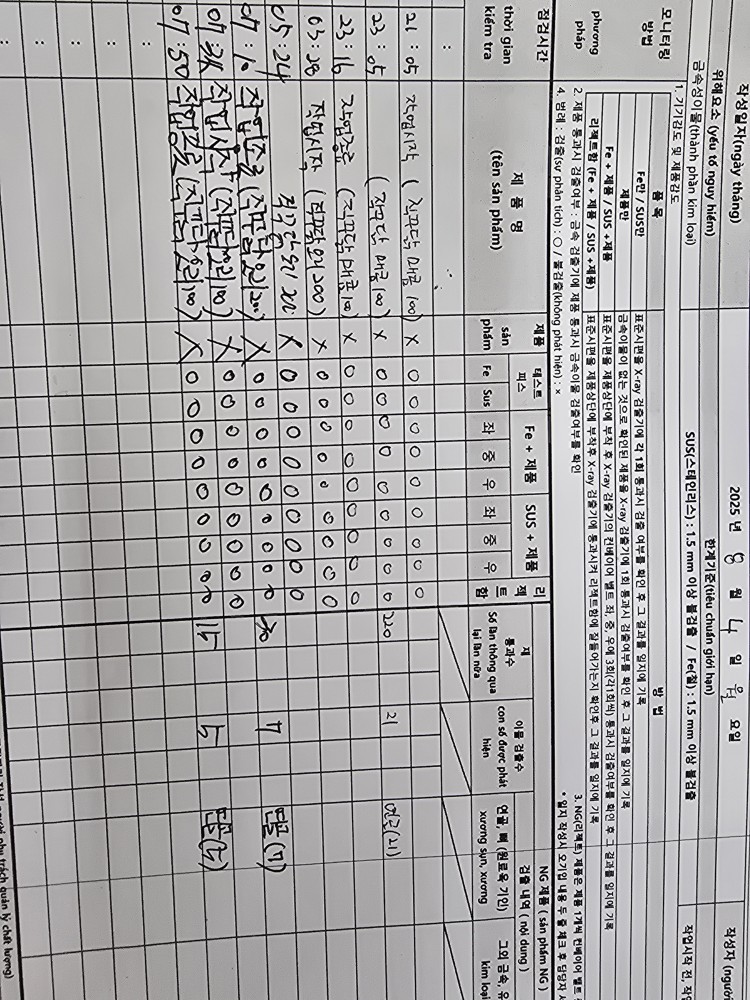 작성일자(ngày tháng) 2025 년 8 월 4 일 월 요일 작성자 (người
위해요소 (yếu tố nguy hiểm) 한계기준(tiêu chuẩn giới hạn) 작업시작 전, 작
금속성이물(thành phần kim loại) SUS(스테인리스) : 1.5 mm 이상 불검출 / Fe(철) : 1.5 mm 이상 불검출
모니터링 방법 phương pháp
1. 기기감도 및 제품감도
품 목 방 법
Fe만 / SUS만 표준시편을 X-ray 검출기에 각 1회 통과시 검출 여부를 확인 후 그 결과를 일지에 기록
제품만 금속이물이 없는 것으로 확인된 제품을 X-ray 검출기에 1회 통과시 검출여부를 확인 후 그 결과를 일지에 기록
Fe + 제품 / SUS +제품 표준시편을 제품상단에 부착 후 X-ray 검출기의 컨베이어 벨트 좌, 중, 우에 3회(각1회씩) 통과시 검출여부를 확인 후 그 결과를 일지에 기록
리젝트함 (Fe + 제품 / SUS +제품) 표준시편을 제품상단에 부착후 X-ray 검출기에 통과시켜 리젝트함에 잘들어가는지 확인후 그 결과를 일지에 기록
2. 제품 통과시 검출여부 : 금속 검출기에 제품 통과시 금속이물 검출여부를 확인 3. NG(리젝트) 제품은 제품 1개씩 컨베이어 벨트
4. 범례 : 검출(sự phân tích) : ○ / 불검출(không phát hiện) : × * 일지 작성시 오기입 내용 두 줄 체크 후 담당자
점검시간 thời gian kiểm tra
제 품 명 (tên sản phẩm)
제품 sản phẩm
테스트 피스 Fe Sus
Fe + 제품 좌 중 우
SUS + 제품 좌 중 우
리젝트함
재 통과수 Số lần thông qua lại lần nữa
이물 검출수 con số được phát hiện
NG 제품 ( sản phẩm NG )
검출 내역 ( nội dung )
연골, 뼈 (원료육 기인) xương sụn, xương
그외 금속, 유 kim loại
:
21 : 05 작업시작 ( 직꾸닭 매콤 100) X O O O O O O O O O
23 : 05 ( 직꾸닭 매콤 100) X O O O O O O O O O 220 21 연골(21)
23 : 16 작업종료 ( 직꾸닭 매콤 100) X O O O O O O O O O
03 : 28 작업시작 ( 직꾸닭 오리 200) X O O O O O O O O O
05 : 24 직꾸닭 오리 200 X O O O O O O O O O
작업종료 (직꾸닭 오리 200) X O O O O O O O O O 7
작업시작 (직꾸닭 오리 100) X O O O O O O O O O
07 : 50 작업종료 (직꾸닭 오리 100) X O O O O O O O O O 115 5
:
:
:
:
: